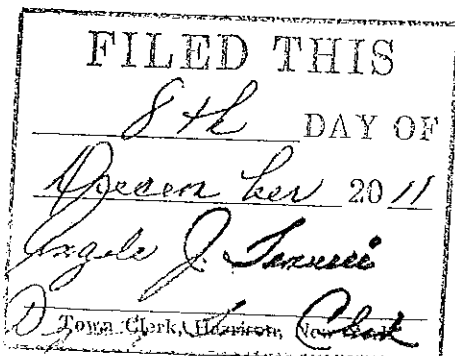 FILED THIS
8th DAY OF
December 2011
J.
Town Clerk, Harrison, New York
Clerk